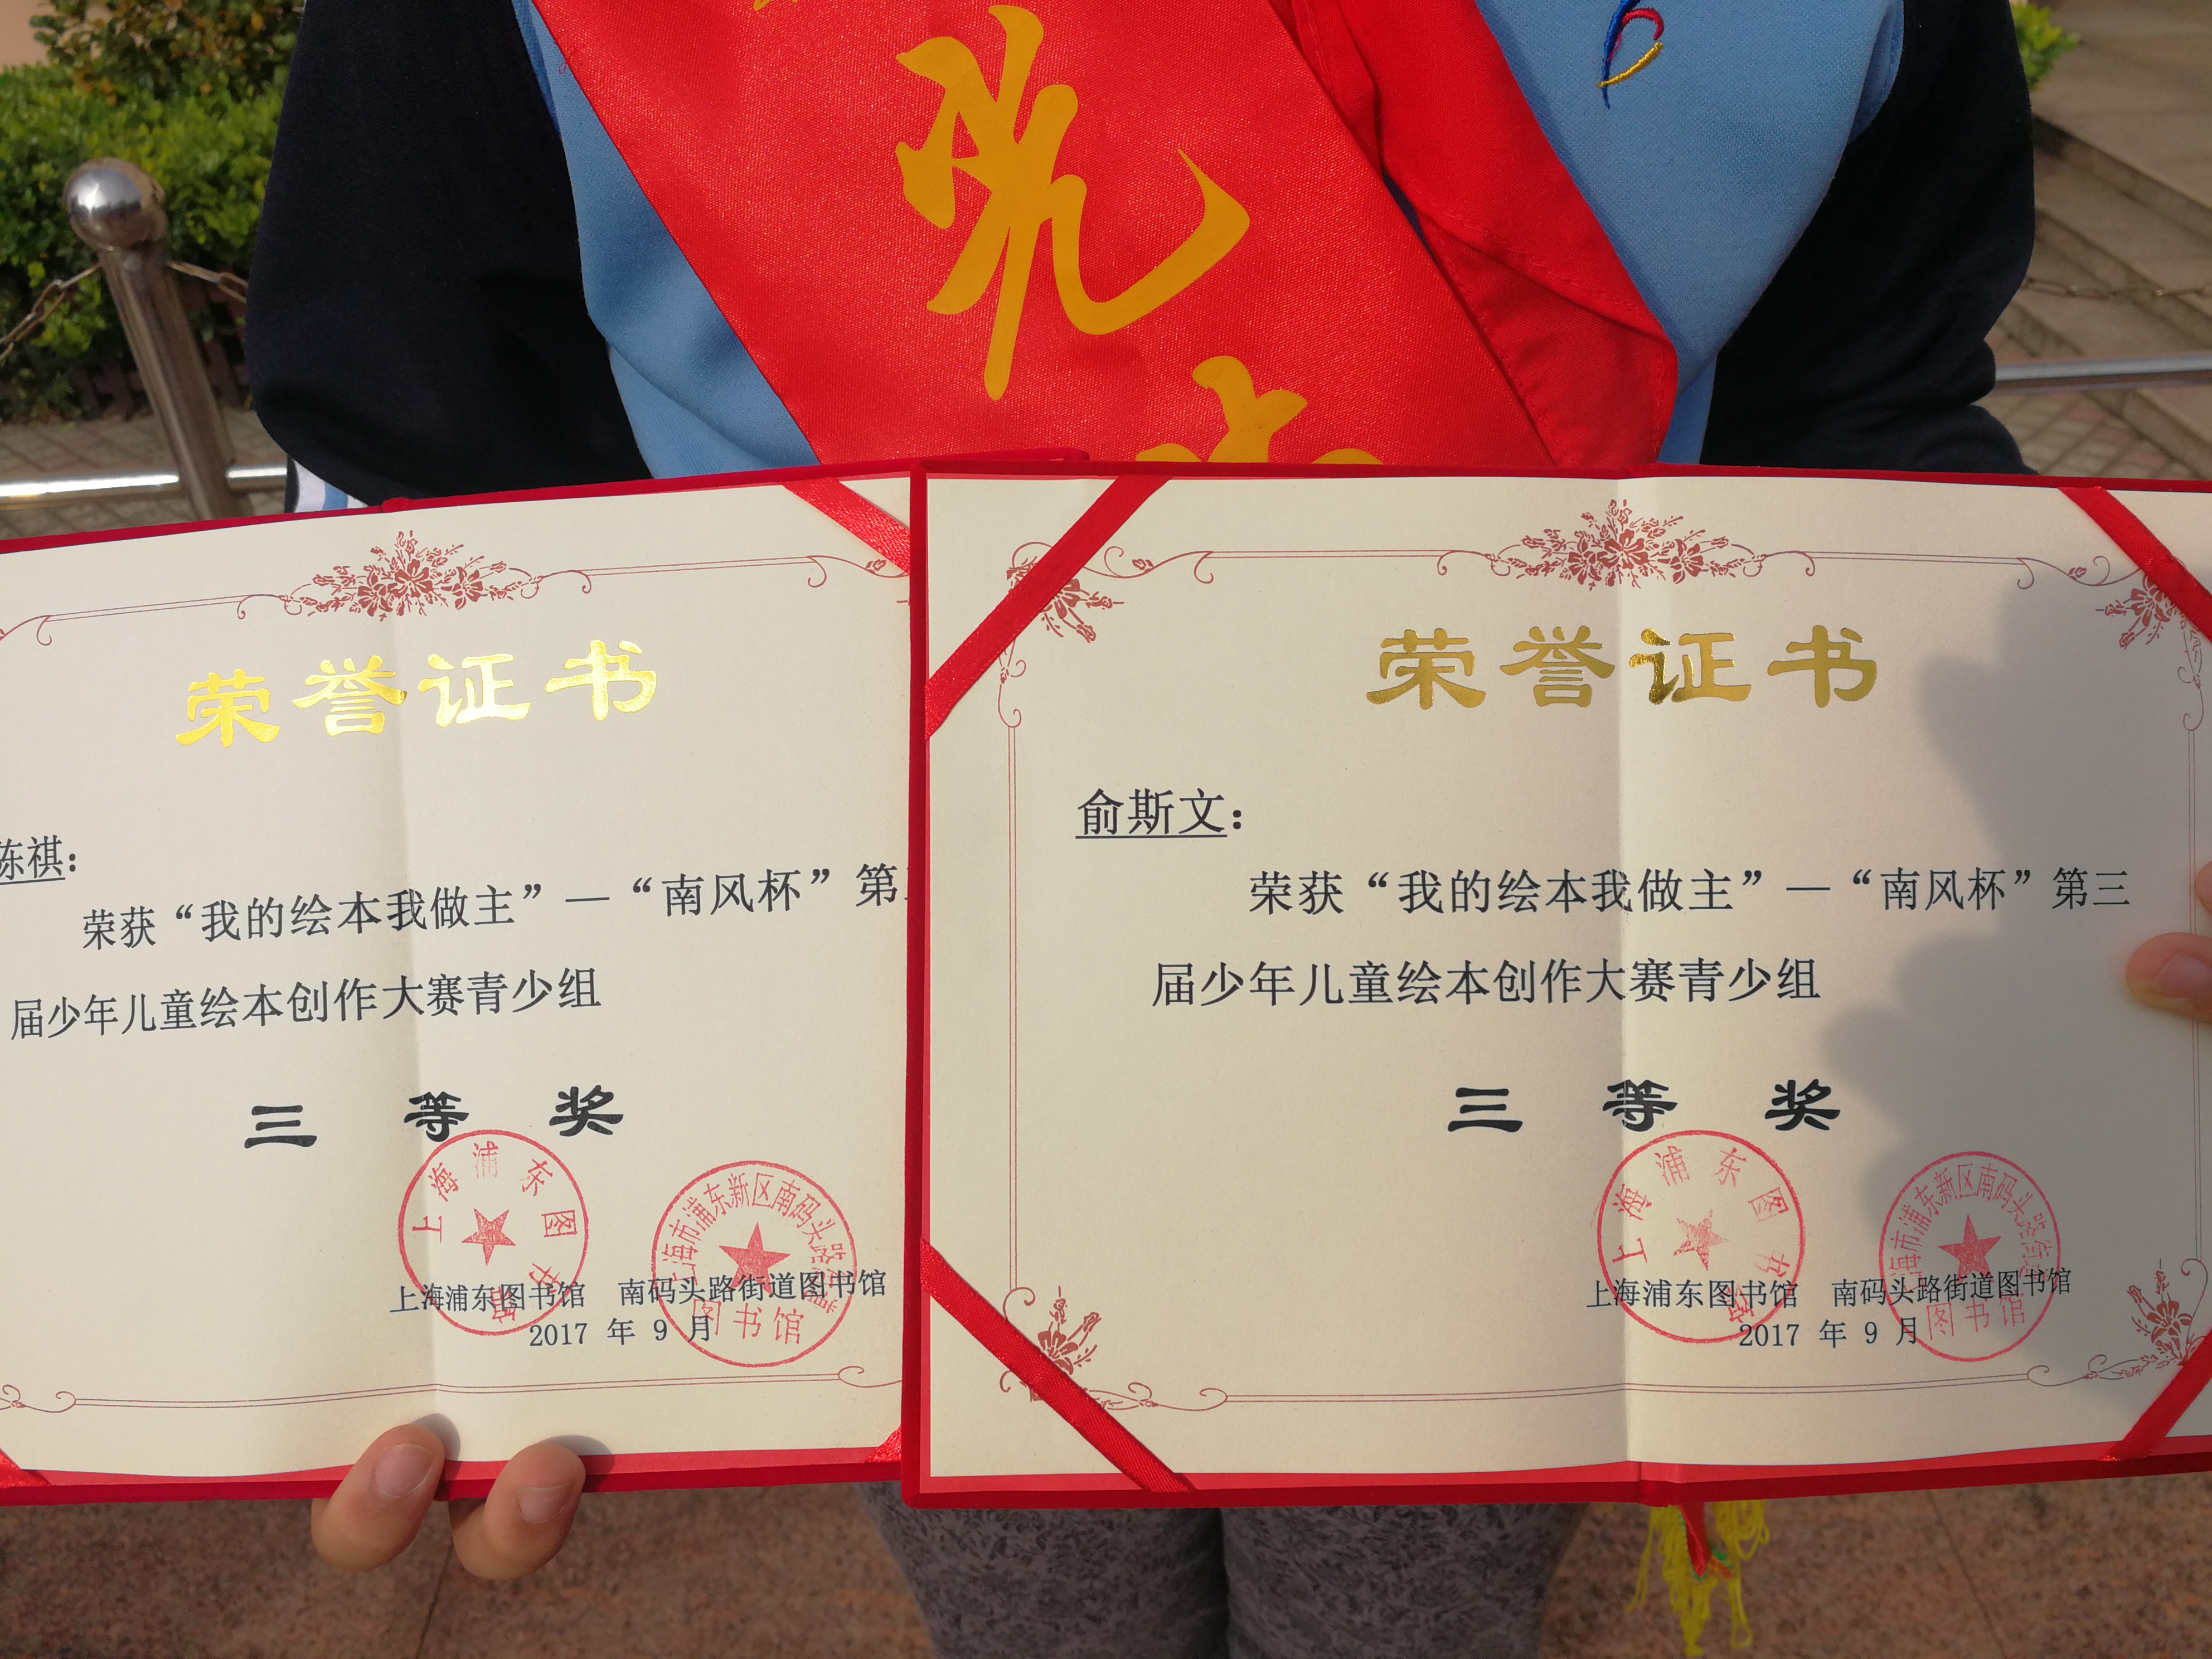 光
荣誉证书
陈祺：
荣获“我的绘本我做主”—“南风杯”第
届少年儿童绘本创作大赛青少组
三等奖
上海浦东图书馆 南码头路街道图书馆
2017 年 9 月
上海浦东图书馆
上海市浦东新区南码头路街道
图书馆
荣誉证书
俞斯文：
荣获“我的绘本我做主”—“南风杯”第三
届少年儿童绘本创作大赛青少组
三等奖
上海浦东图书馆 南码头路街道图书馆
2017 年 9 月
上海浦东图书馆
上海市浦东新区南码头路街道
图书馆